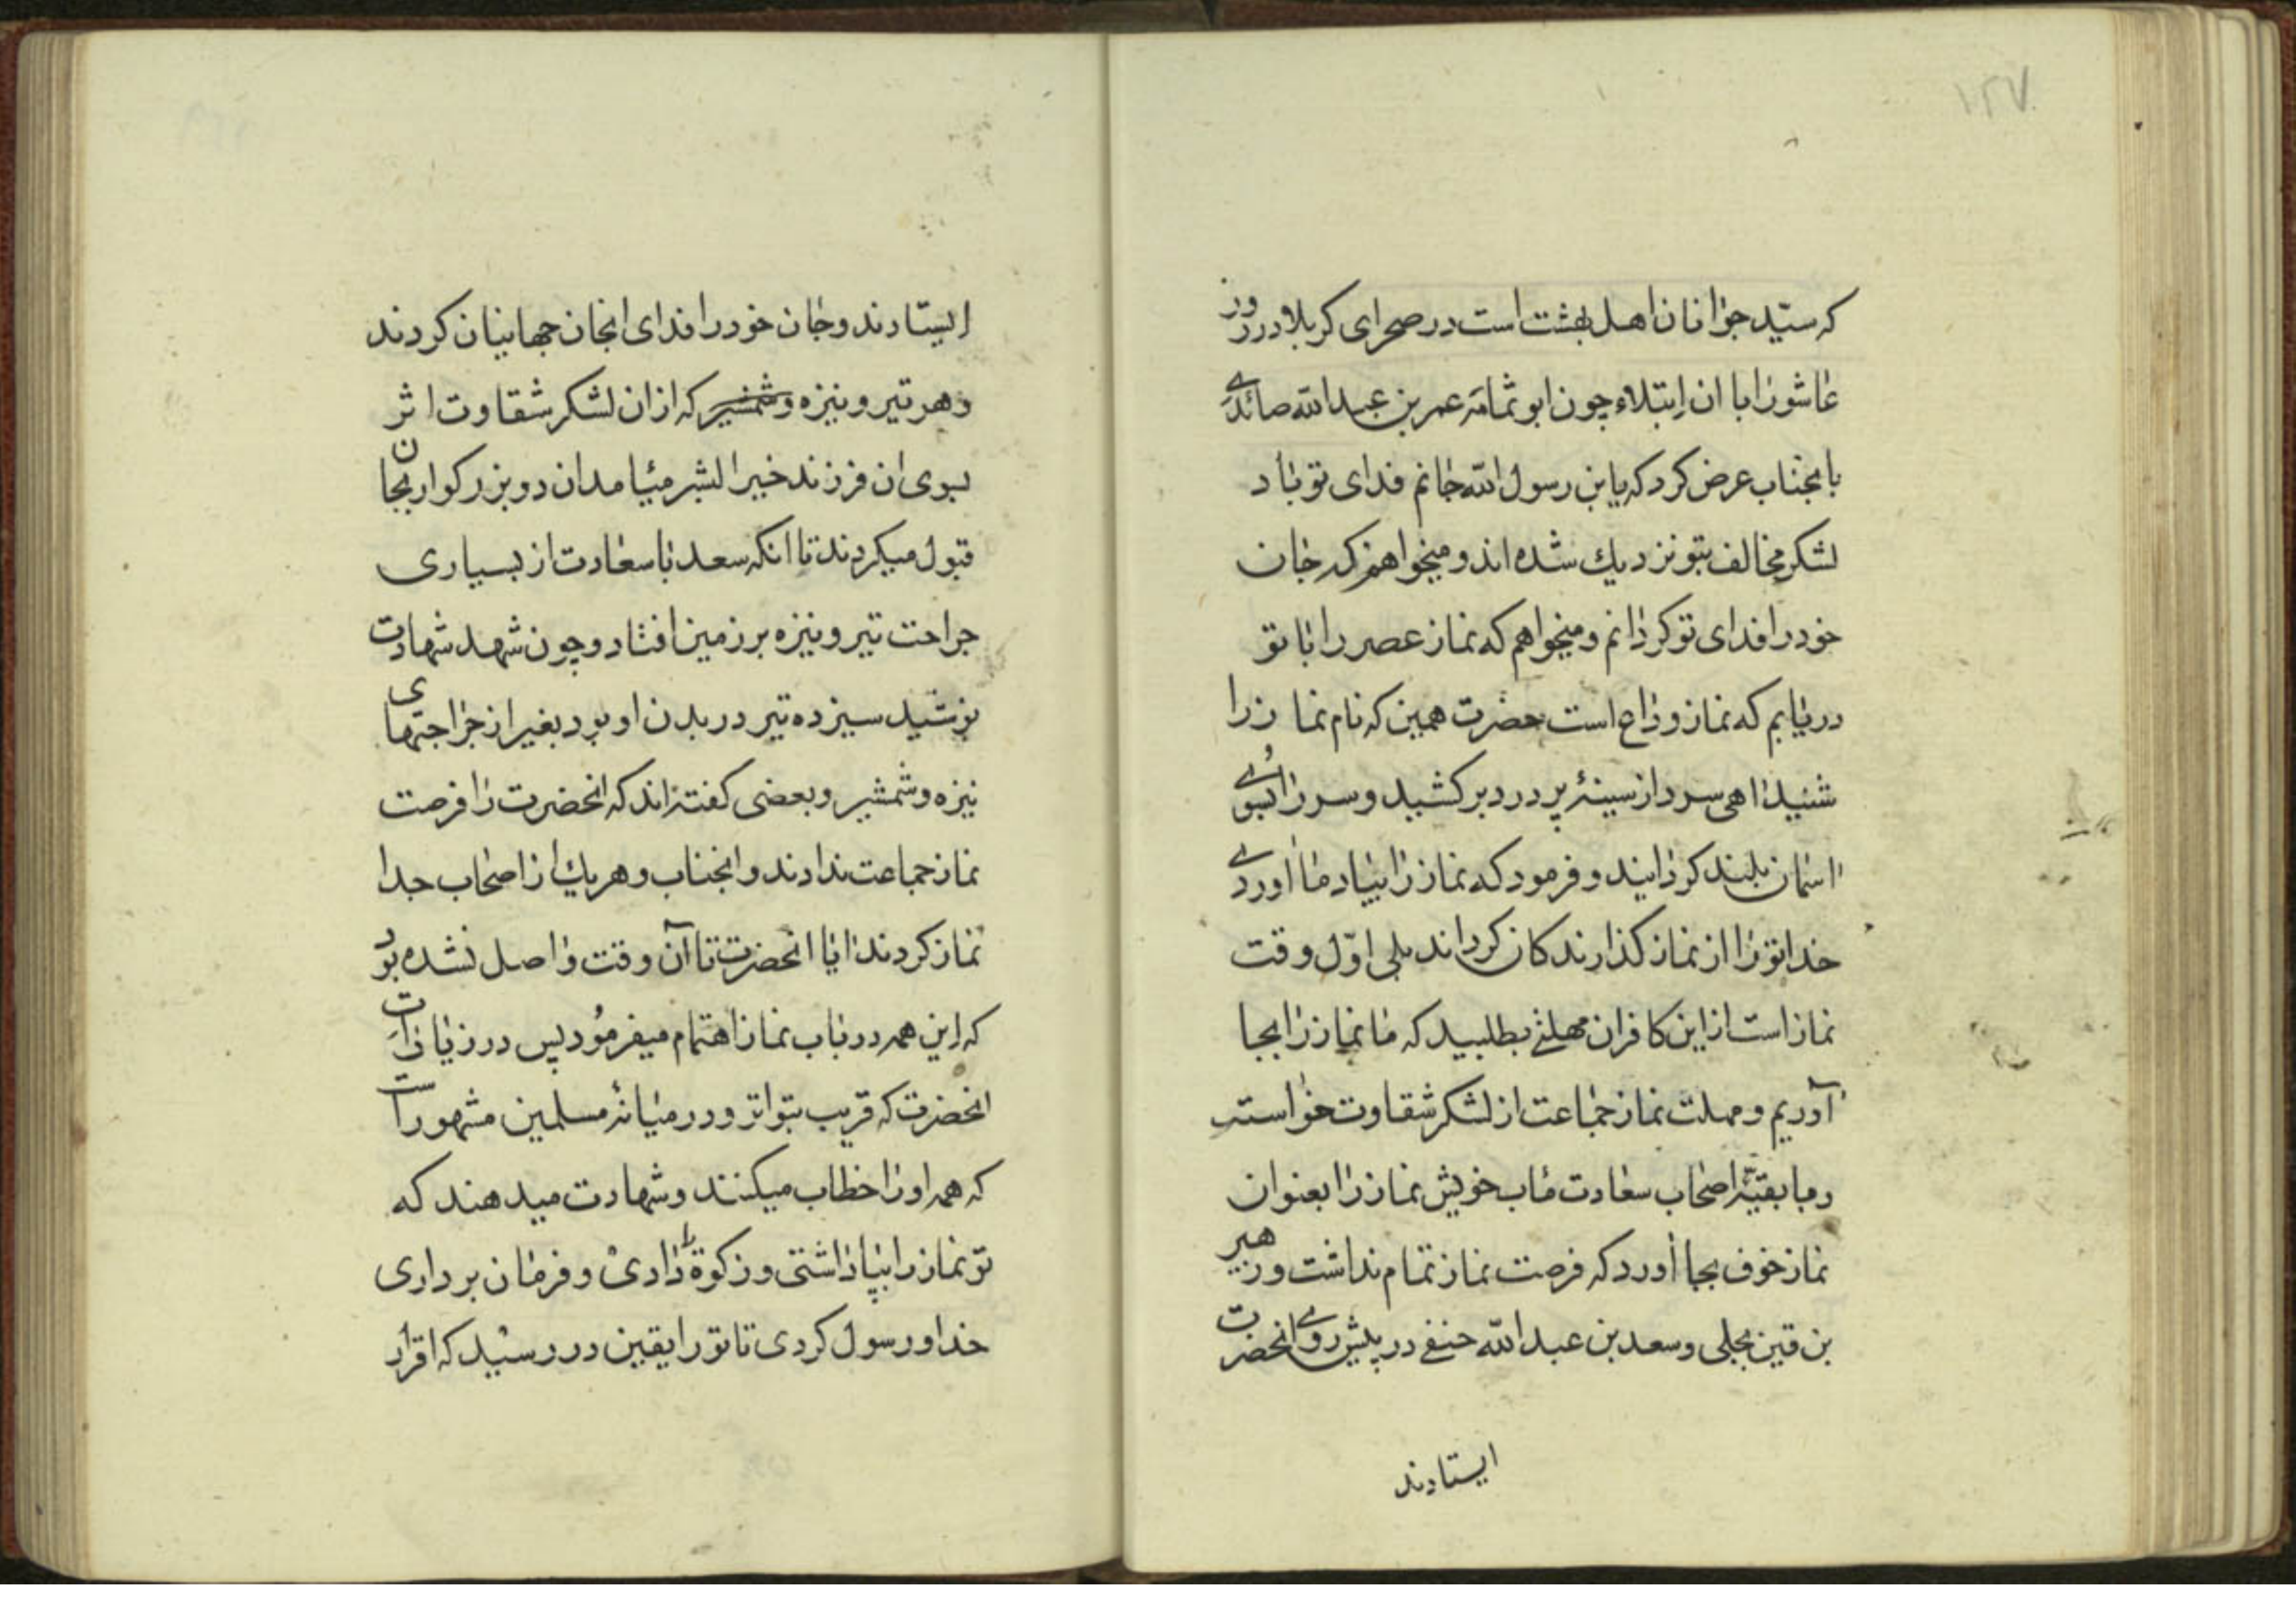 ۱۲۷
که سیّد جوانان اهل بهشت است در صحرای کربلا در روز
عاشورا با ان ابتلاء چون ابو ثمامه عمر بن عبد الله صائدی
بانجناب عرض کرد که یابن رسول الله جانم فدای تو باد
لشکر مخالف بتو نزدیك شده اند و میخواهم که جان
خود را فدای تو کردانم و میخواهم که نماز عصر را با تو
دریابم که نماز وداع است حضرت همین که نام نماز را
شنید اهی سرد از سینهٔ پر درد بر کشید و سر را بسوی
اسمان بلند کردانید و فرمود که نماز را بیاد ما اوردی
خدا تو را از نماز کذارندکان کرداند بلی اوّل وقت
نماز است از این کافران مهلتی بطلبید که ما نماز را بجا
آوریم و مهلت نماز جماعت از لشکر شقاوت خواسته
و با بقیّهٔ اصحاب سعادت ماب خویش نماز را بعنوان
نماز خوف بجا اورد که فرصت نماز تمام نداشت و زهیر
بن قین بجلی و سعد بن عبد الله حنفی در پیش روی انحضرت
ایستادند
ایستادند و جان خود را فدای انجان جهانیان کردند
و هر تیر و نیزه و شمشیر که از ان لشکر شقاوت اثر
بسوی ان فرزند خیر البشر میامد ان دو بزرکوار بجان
قبول میکردند تا انکه سعد با سعادت از بسیاری
جراحت تیر و نیزه بر زمین افتاد و چون شهد شهادت
نوشید سیزده تیر در بدن او بود بغیر از جراحتهای
نیزه و شمشیر و بعضی کفته اند که انحضرت را فرصت
نماز جماعت ندادند و انجناب و هر یك از اصحاب جدا
نماز کردند ایا انحضرت تا آن وقت واصل نشده بود
که این همه در باب نماز اهتمام میفرمود پس در زیارات
انحضرت که قریب بتواتر و در میانهٔ مسلمین مشهور است
که همه او را خطاب میکنند و شهادت میدهند که
تو نماز را بپا داشتی و زکوة دادی و فرمان برداری
خدا و رسول کردی تا تو را یقین در رسید که اقرار